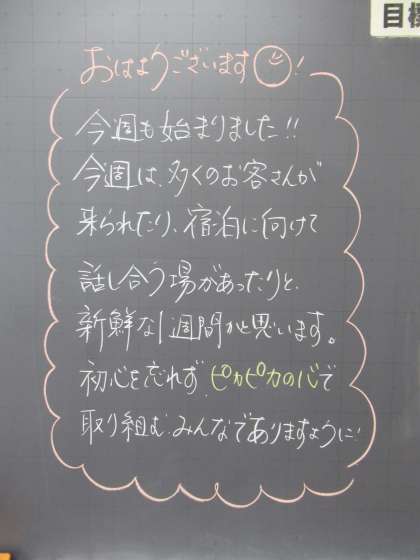 目標
おはようございます!
今週も始まりました!!
今週は、多くのお客さんが
来られたり、宿泊に向けて
話し合う場があったりと、
新鮮な1週間かと思います。
初心を忘れず、ピカピカの心で
取り組む みんなでありますように!